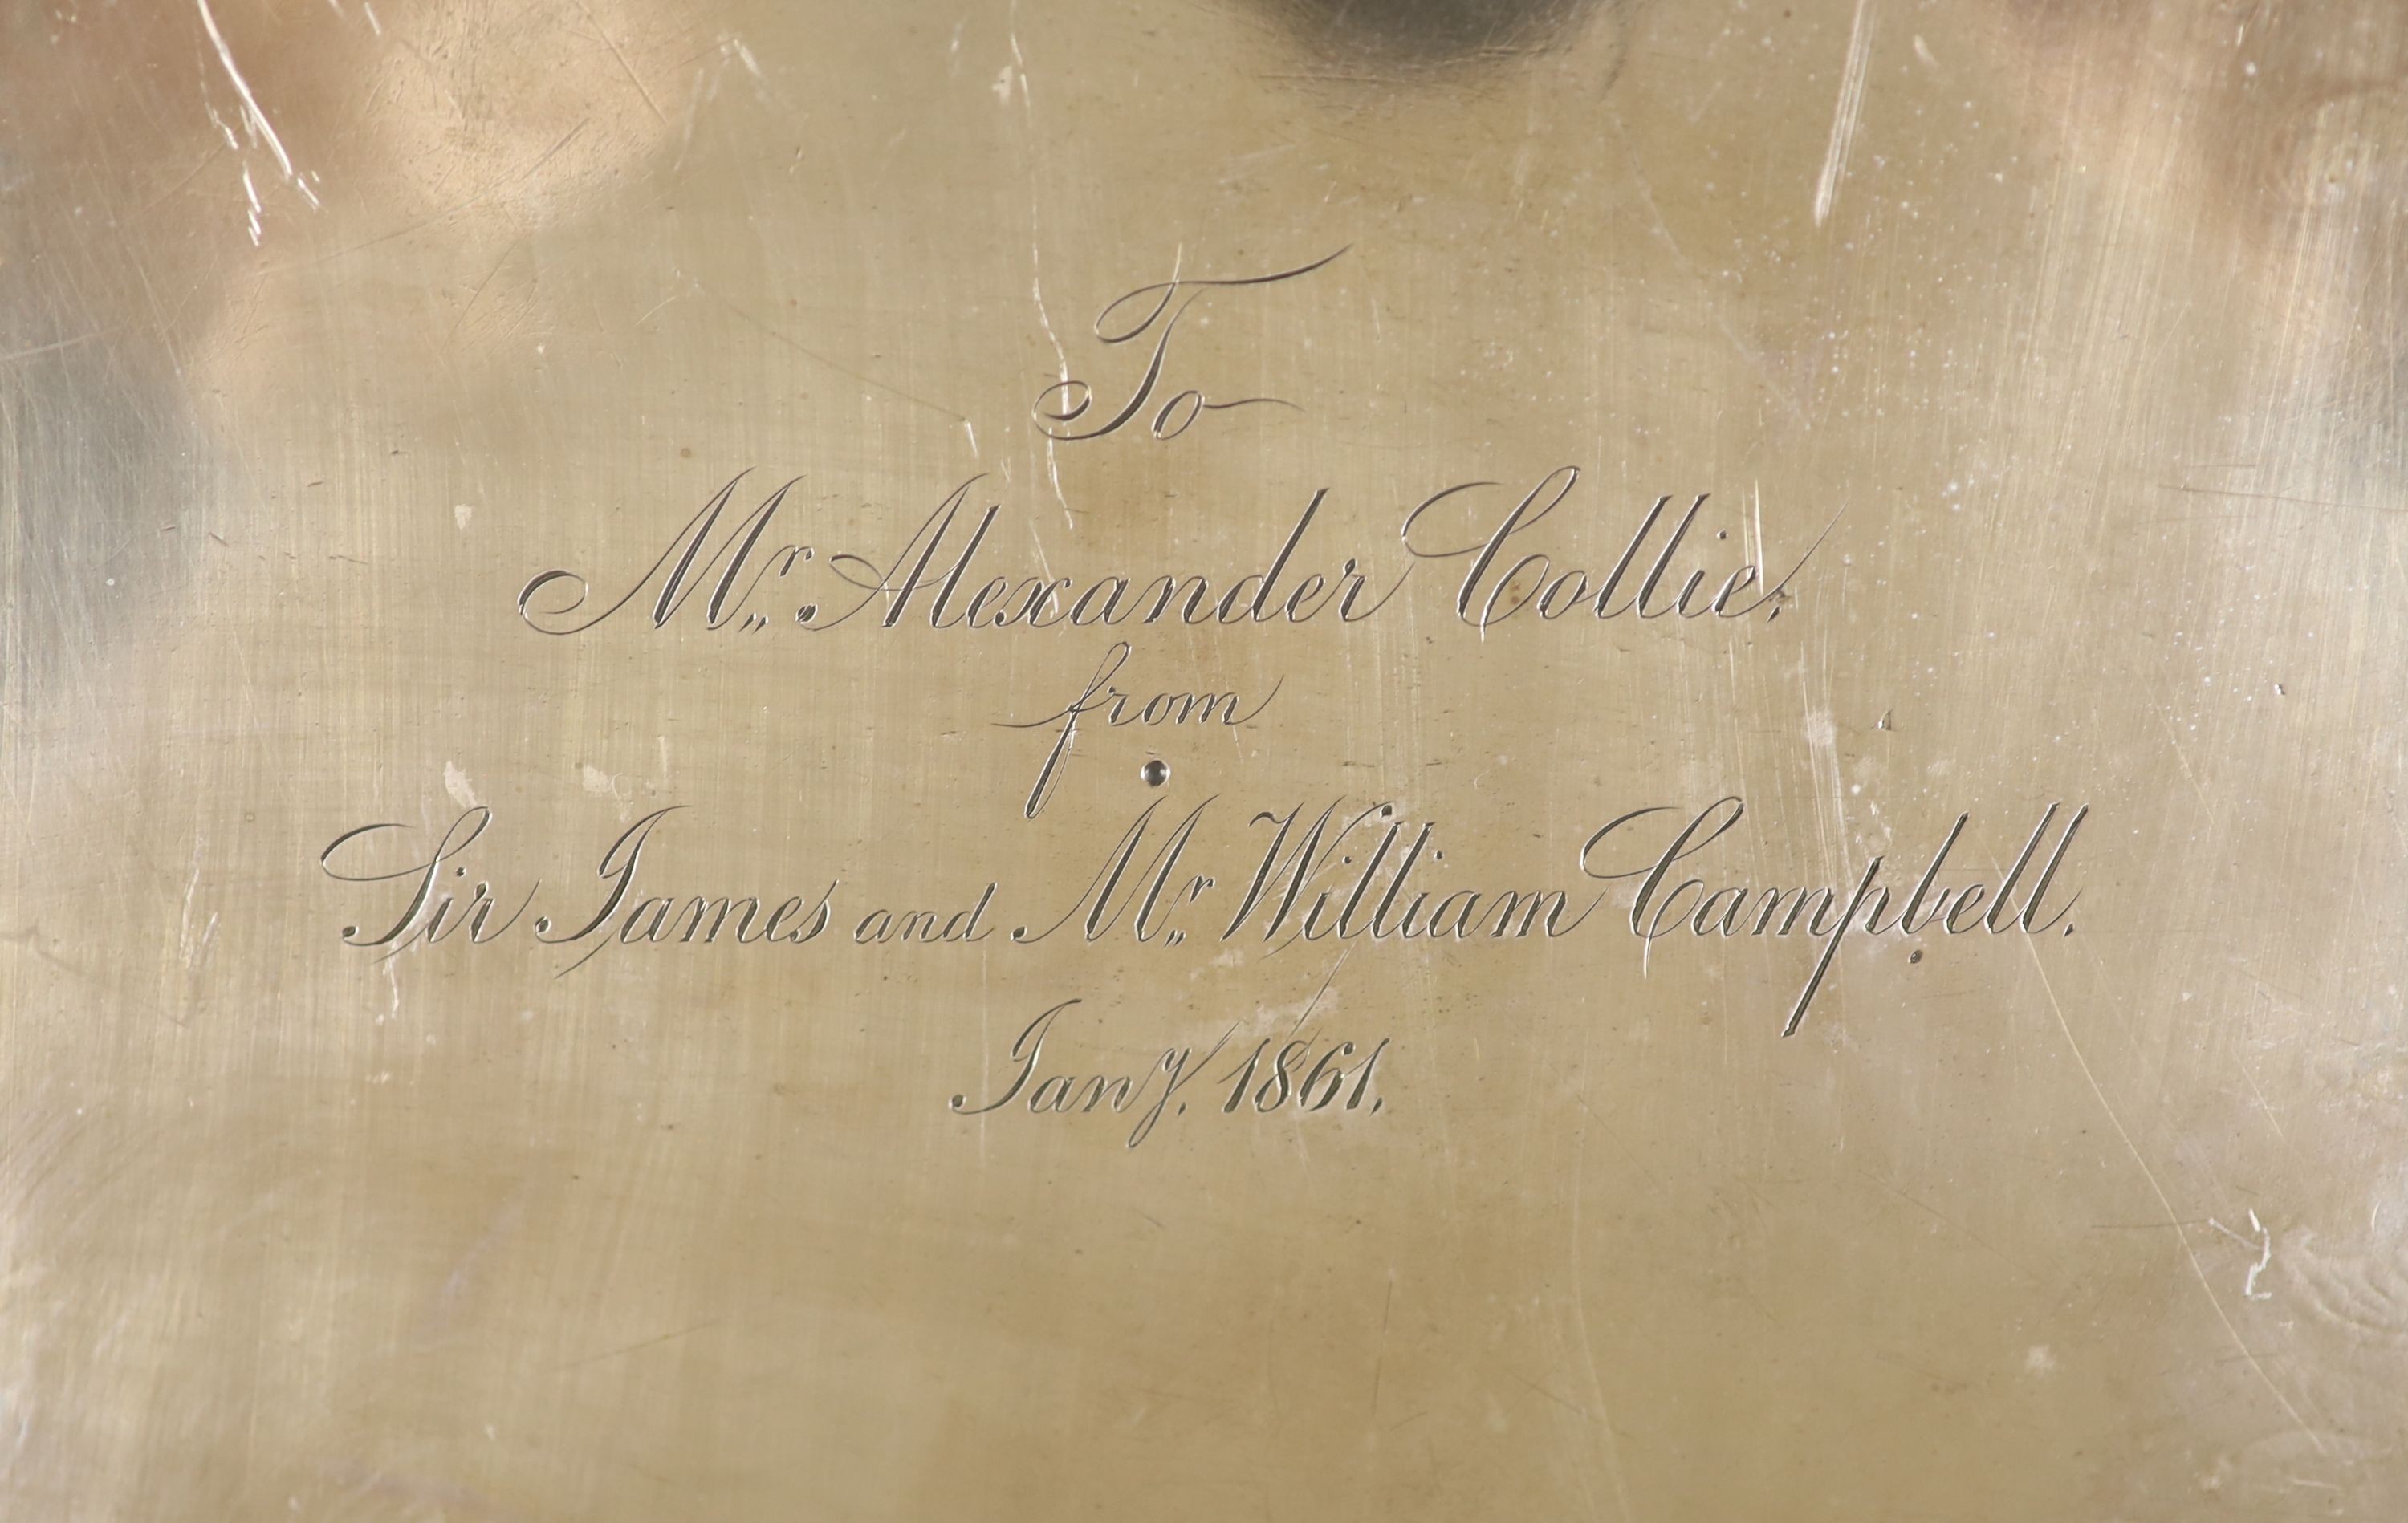 To
Mr. Alexander Collie.
from
Sir James and Mr. William Campbell.
Jany. 1861.